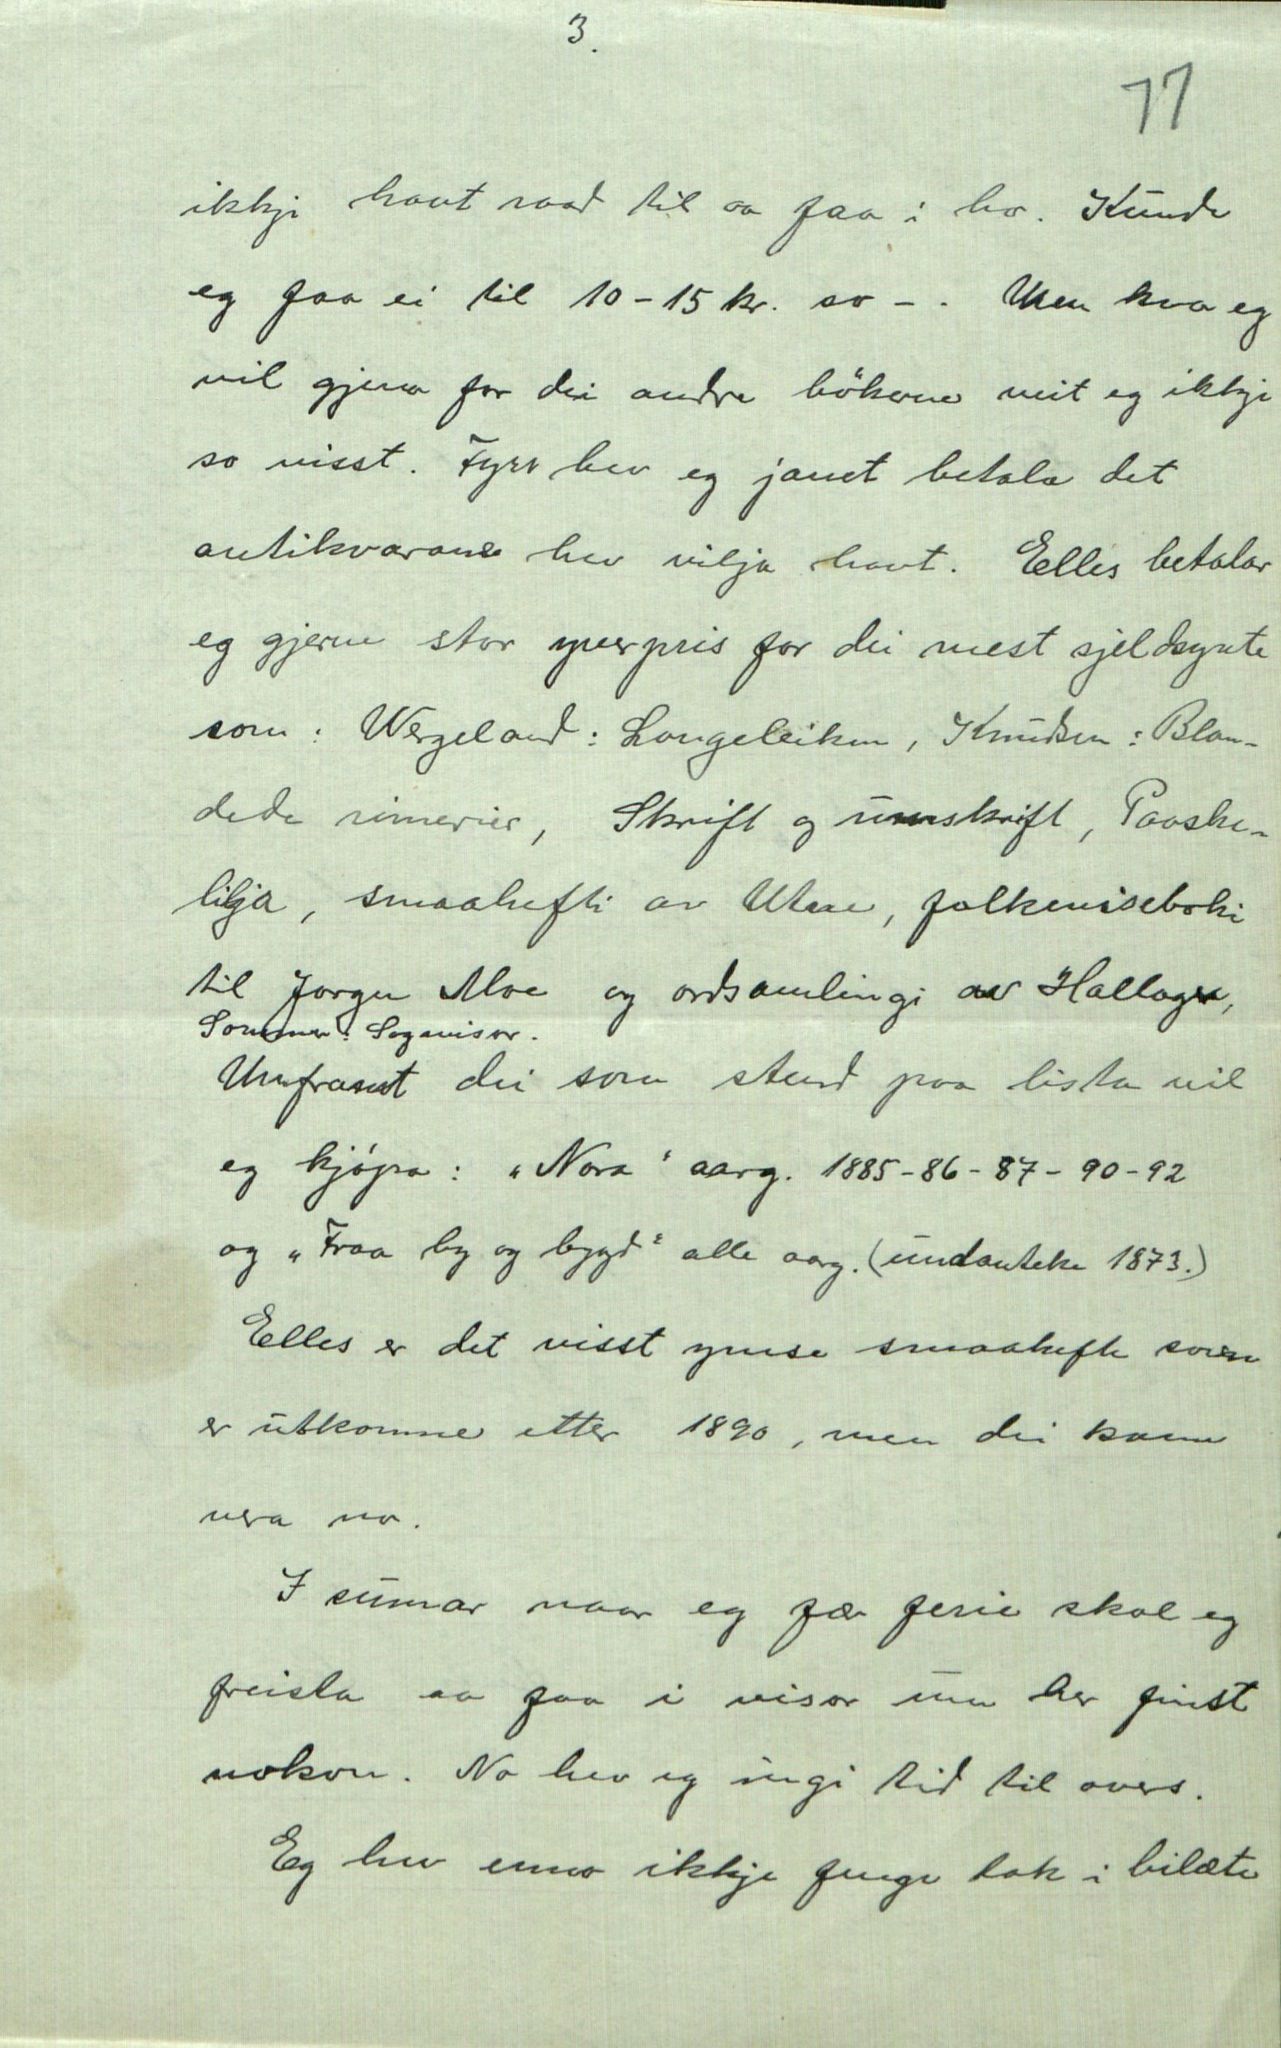 3.
77
ikkje havt raad til aa faa i ho. Kunde
eg faa ei til 10-15 kr. so -. Men kva eg
vil gjeva for dei andre bökerne veit eg ikkje
so visst. Fyrr hev eg jamt betala det
antikvarane hev vilja havt. Elles betalar
eg gjerne stor yverpris for dei mest sjeldsynte
som: Wergeland: Langeleiken, Knudsen: Blan-
dede rimerier, Skrift og umskrift, Paaske-
lilja, smaahefti av Utne, folkeviseboki
til Jørgen Moe og ordsamlingi av Hallager,
Sommer: Sogavisor.
Umframt dei som stend paa lista vil
eg kjøpa: „Nora" aarg. 1885-86-87-90-92
og „Fraa by og bygd" alle aarg. (undanteke 1873.)
Elles er det visst ymse smaahefte som
er utkomne etter 1890, men dei kann
vera no.
I sumar naar eg fær ferie skal eg
freista aa faa i visor um her finst
nokon. No hev eg ingi tid til overs.
Eg hev enno ikkje fenge tak i bilæte